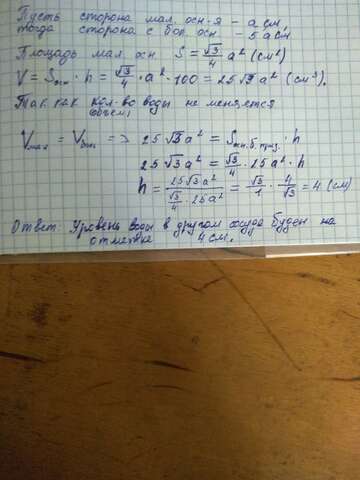 Пусть сторона мал. осн-я - a см,
тогда сторона с бол. осн. - 5 a см
Площадь мал. осн. S = √3/4 a² (см²)
V = Sосн · h = √3/4 · a² · 100 = 25√3 a² (см³).
Так как кол-во воды не меняется
объем,
Vмал = Vбол => 25√3a² = Sосн.б.приз. · h
25√3a² = √3/4 · 25a² · h
h = 25√3a² / (√3/4 · 25a²) = √3/1 · 4/√3 = 4 (см)
Ответ: Уровень воды в другом сосуде будет на
отметке 4 см.